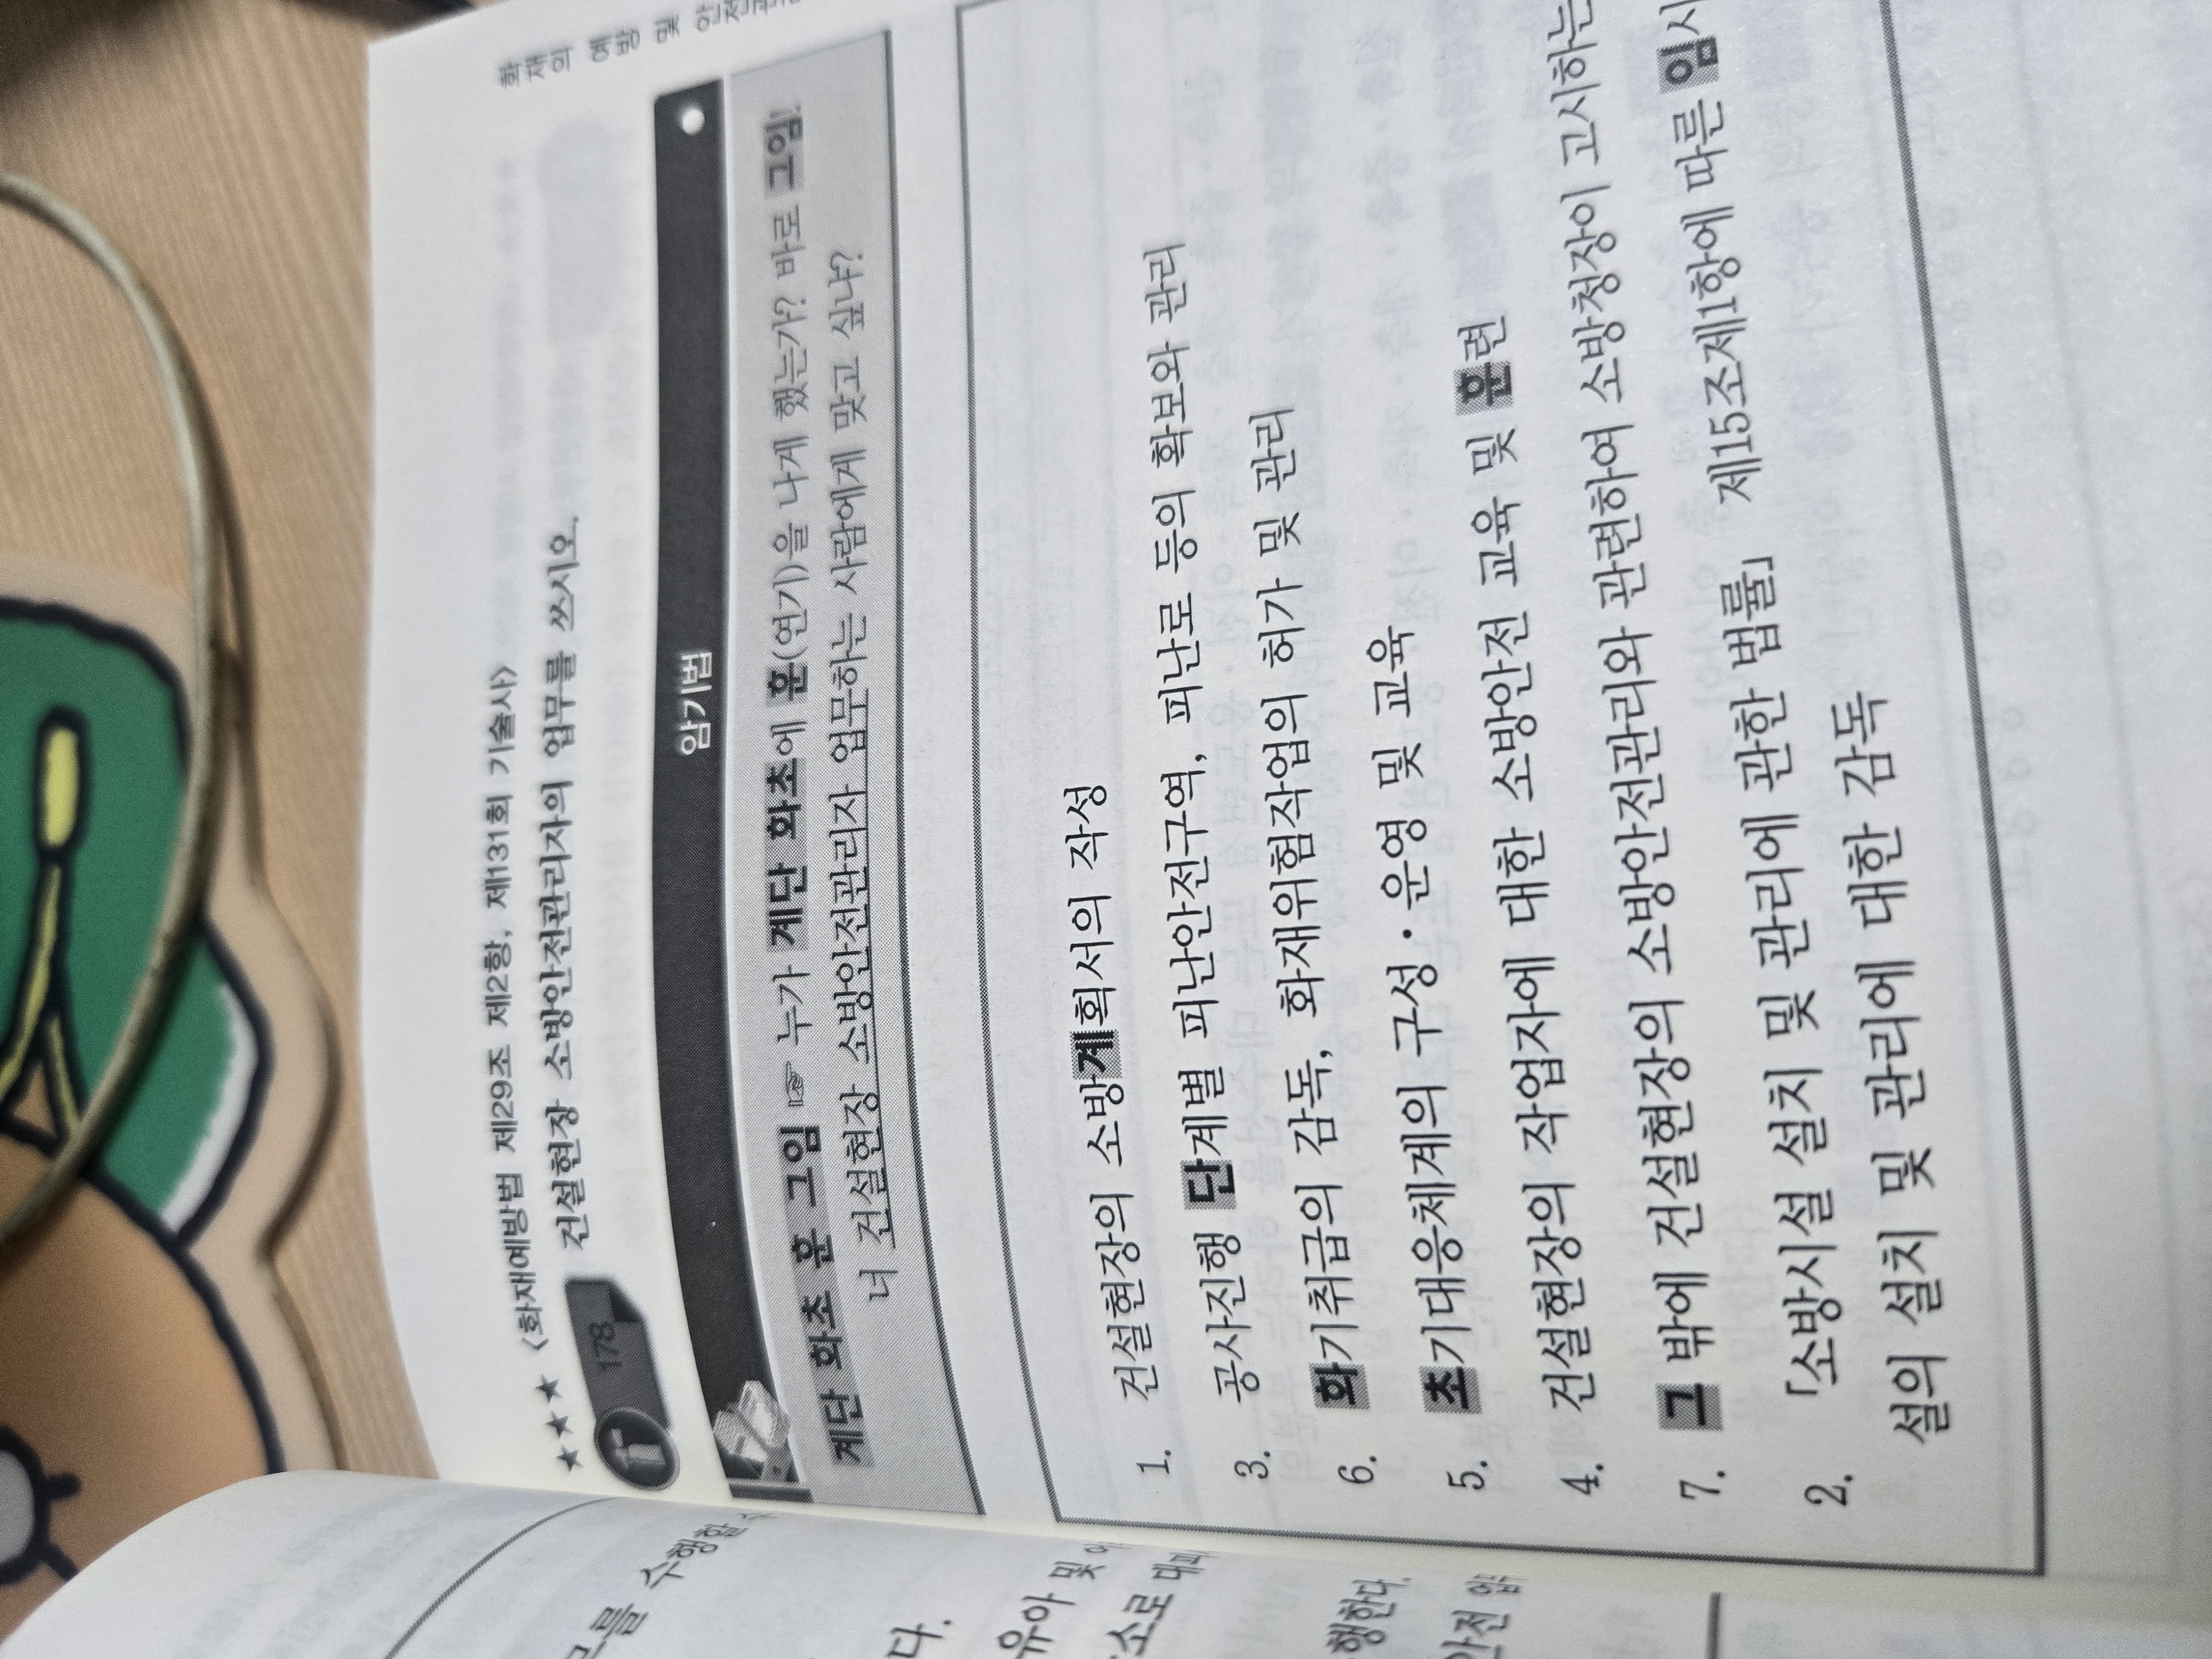 화재의 예방 및 안전관
★★★ <화재예방법 제29조 제2항, 제131회 기술사>
178 건설현장 소방안전관리자의 업무를 쓰시오.
암기법
계단 화초 훈 그임 ☞ 누가 계단 화초에 훈(연기)을 나게 했는가? 바로 그임!
너 건설현장 소방안전관리자 업무하는 사람에게 맞고 싶냐?
1. 건설현장의 소방계획서의 작성
3. 공사진행 단계별 피난안전구역, 피난로 등의 확보와 관리
6. 화기취급의 감독, 화재위험작업의 허가 및 관리
5. 초기대응체계의 구성·운영 및 교육
4. 건설현장의 작업자에 대한 소방안전 교육 및 훈련
7. 그 밖에 건설현장의 소방안전관리와 관련하여 소방청장이 고시하는
2. 「소방시설 설치 및 관리에 관한 법률」 제15조제1항에 따른 임시
설의 설치 및 관리에 대한 감독
무를 수행할
다.
유아 및
소로 대피
행한다.
안전